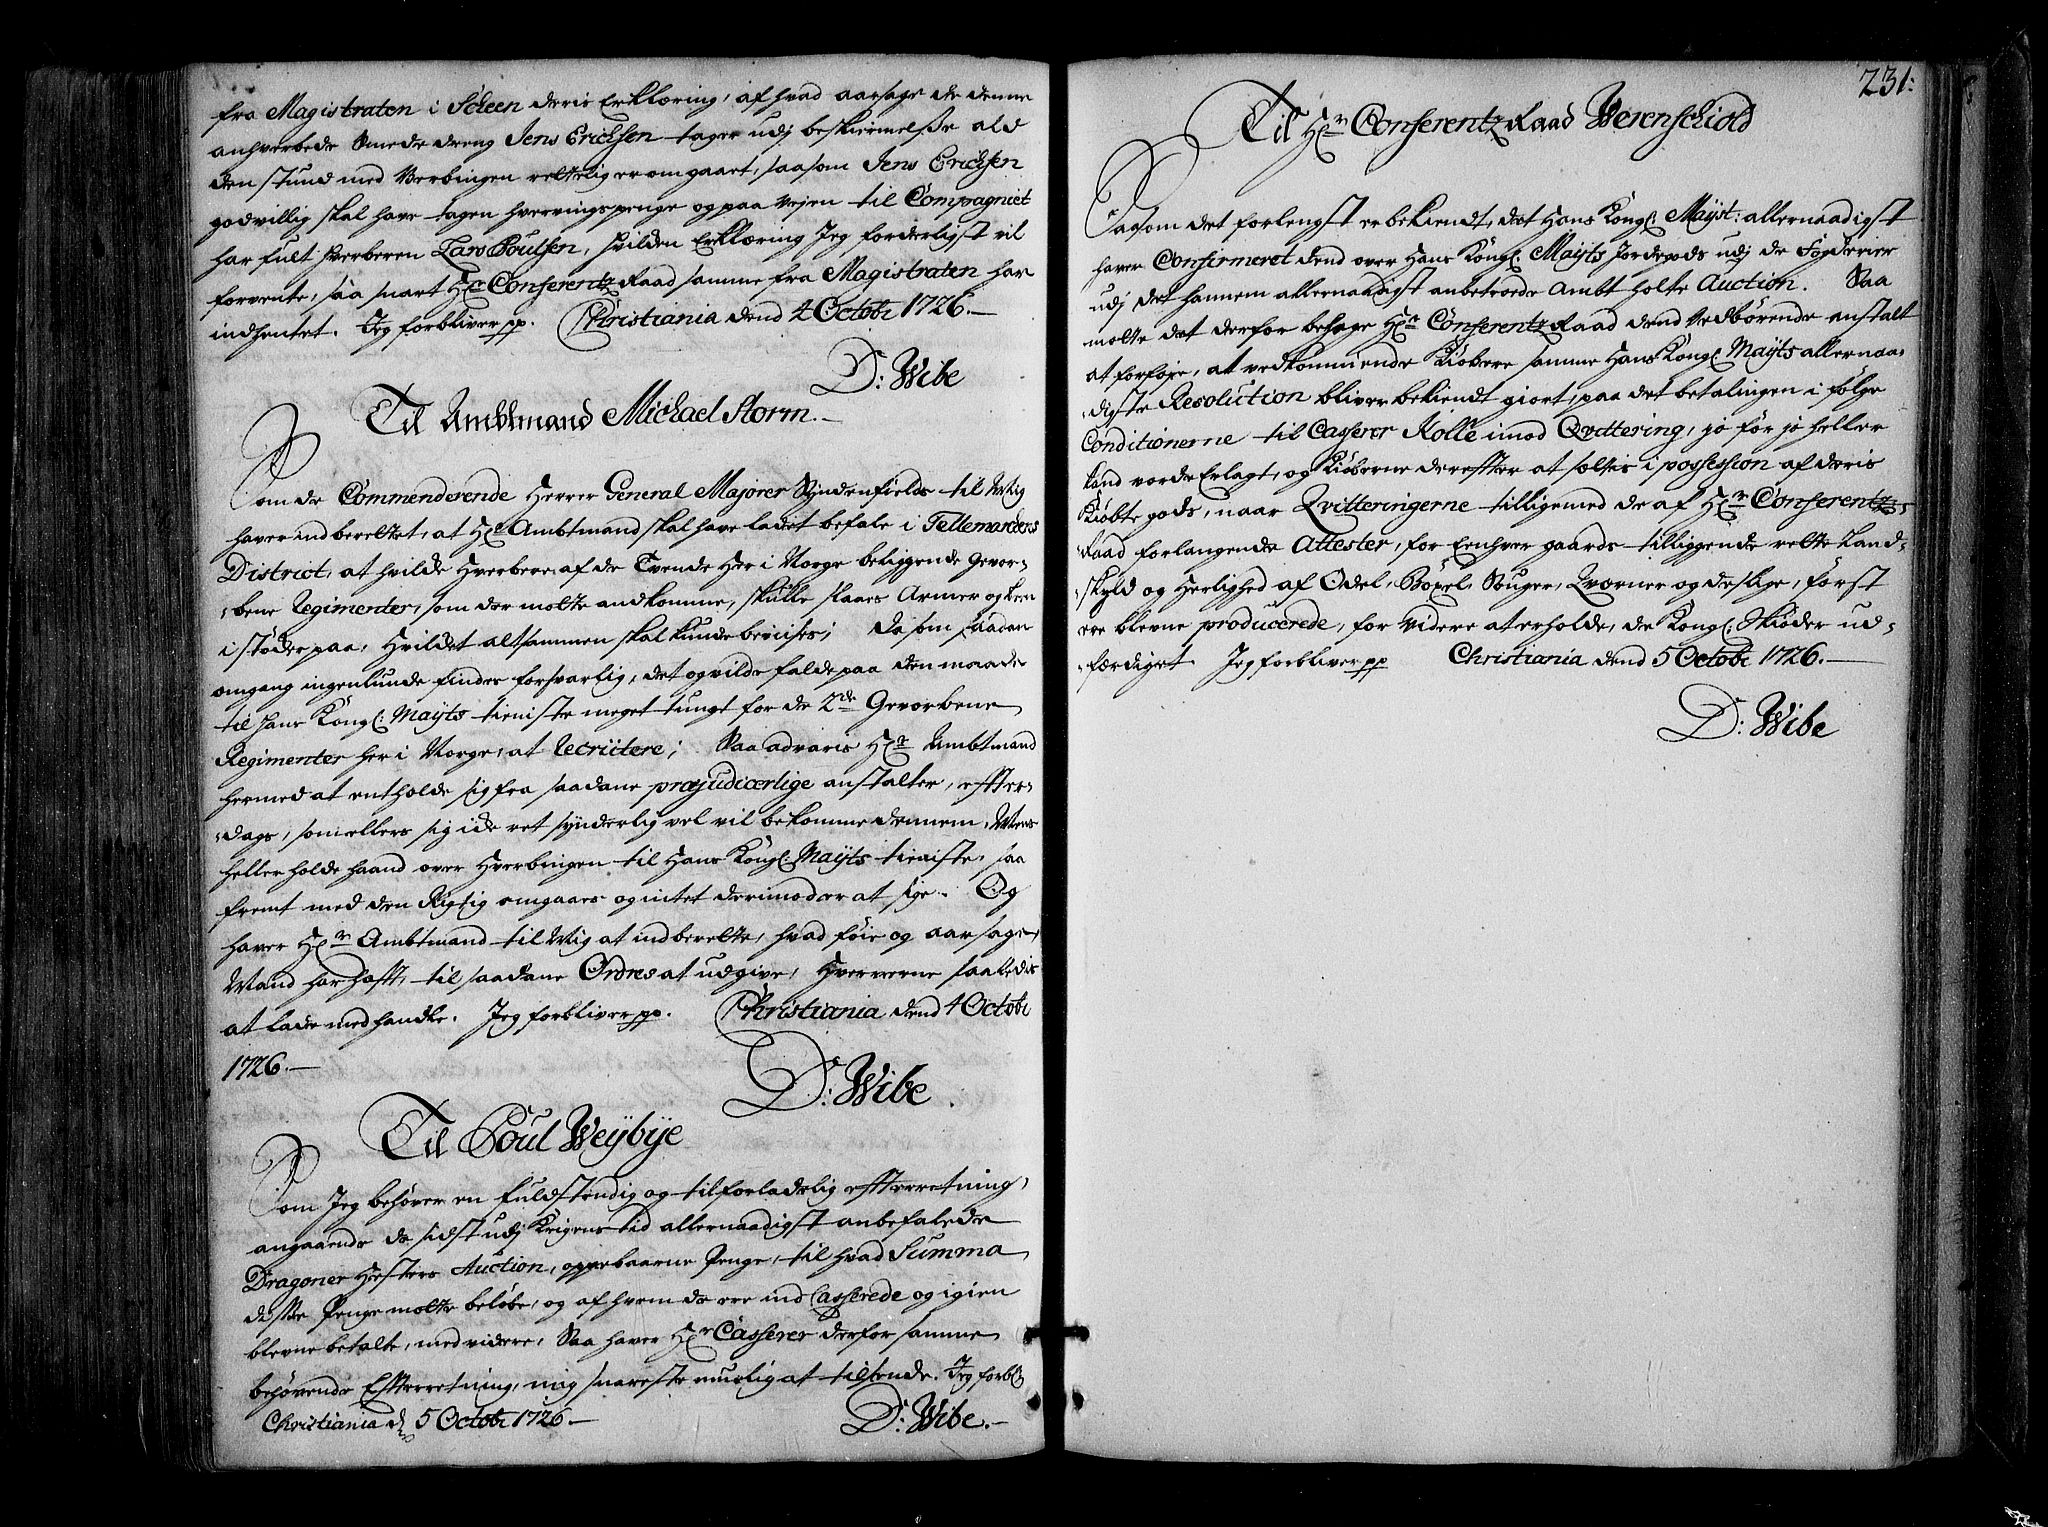 fra Magistraten i Scheen deris Erklæring, af hvad aarsage de denne
anhverbede Smede dreng Jens Erichsen tager udj beskiermelse ald
den stund med Verbingen rettelig er omgaaet, saasom Jens Erichsen
godvillig skal have tagen hvervingspenge og paa Vejen til Compagniet
har fult Hverberen Lars Poulsen, hvilden Erklæring Jeg forderligst vil
forvente, saa snart Hr Conferentz Raad samme fra Magistraten har
indhentet. Jeg forbliver pp. Christiania dend 4 Octobr 1726.
D: Wibe
Til Ambtmand Michael Storm.
Som de Commenderende Herrer General Majorer Syndenfields til Mig
haver indberettet, at Hr Ambtmand skal have ladet befale i Tellemarckens
District, at hvilde Hverbere af de Tvende Her i Norge beliggende Gevor-
bene Regimenter, som der motte andkomme, skulle slaaes Armer og Been
i støder paa, Hvildet altsammen skal kunde bevises; Da som saadan
omgang ingenlunde findes forsvarlig, det og vilde falde paa den maade
til Hans Kongl: Mayts tieniste meget tungt for de 2de Gevorbene
Regimenter her i Norge, at Recrutere; Saa advaris Hr Ambtmand
hermed at entholde sig fra saadane præjudicerlige anstalter, effter-
dags, som ellers sig ide ret synderlig vel vil bekomme dennem, Mens
heller holde haand over Hverbingen til Hans Kongl: Mayts tieniste, saa
fremt med den Rigtig omgaaes og intet derimod er at sige. Og
haver Hr Ambtmand til Mig at indberette, hvad føie og aarsage
Mand har hafft, til saadane Ordres at udgive, Hververne saaledis
at lade medhandle. Jeg forbliver pp. Christiania dend 4 Octobr
1726.
D: Wibe.
Til Poul Weybye
Som Jeg behøver en fuldstendig og tilforladelig effterretning,
angaaende de sidst udj Krigens tid allernaadigst anbefalede
Dragoner Hesters Auction, oppebaarne Penge, til hvad Summa
disse Penge motte beløbe, og af hvem de ere ind Casserede og igien
blevne betalte, med videre, Saa haver Hr Casserer derfor samme
behøvende Effterretning, mig snareste muelig at tilsende. Jeg forbl:
Christiania d 5 Octobr 1726.
D: Wibe.
231:
Til Hr Conferentz Raad Werenschiold
Saasom det forlengst er bekiendt, det Hans Kongl: Mayst: allernaadigst
haver Confirmeret dend over Hans Kongl: Mayts Jordegods udj de Fogderier
udj det hannem allernaadigst anbetroede Ambt holte Auction. Saa
motte det derfor behage Hr Conferentz Raad dend Vedbørende anstalt
at forføje, at vedkommende Kiøbere samme Hans Kongl: Mayts allernaa-
digste Resolution bliver bekiendt giort, paa det betalingen i følge
Conditionerne til Casserer Kolle imod Qvittering, jo før jo heller
kand vorde Erlagt, og Kiøberne dereffter at settes i possession af deris
Kiøbte gods, naar Qvitteringerne tilligemed de af Hr Conferentz-
Raad forlangende Attester, for Eenhver gaards tilliggende rette Land-
skyld og Herlighed af Odel, Bøxel, Souger, Qværner og deslige, først
ere blevne producerede, for Videre at erholde, de Kongl: Skiøder ud-
færdiget. Jeg forbliver pp Christiania dend 5 Octobr 1726.
D: Wibe